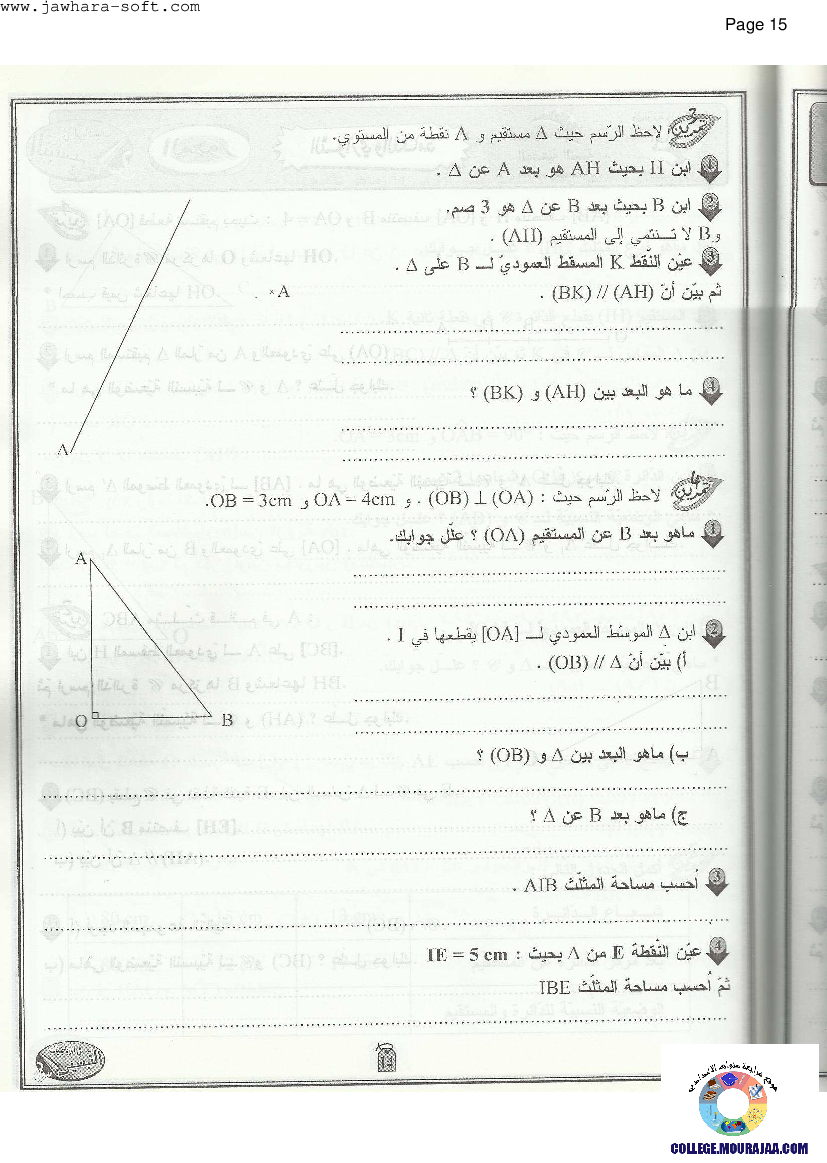 www.jawhara-soft.com
Page 15
تمرين 3 لاحظ الرّسم حيث Δ مستقيم و A نقطة من المستوي.
1 ابن H بحيث AH هو بعد A عن Δ .
2 ابن B بحيث بعد B عن Δ هو 3 صم.
و B لا تنتمي إلى المستقيم (AH) .
3 عيّن النّقط K المسقط العموديّ لـ B على Δ .
ثم بيّن أنّ (AH) // (BK) .
× A
Δ
4 ما هو البعد بين (AH) و (BK) ؟
تمرين 4 لاحظ الرّسم حيث : (OA) ⊥ (OB) . و OA = 4cm و OB = 3cm.
1 ماهو بعد B عن المستقيم (OA) ؟ علّل جوابك.
A
O
B
2 ابن Δ الموسّط العمودي لـ [OA] يقطعها في I .
أ) بيّن أنّ Δ // (OB) .
ب) ماهو البعد بين Δ و (OB) ؟
ج) ماهو بعد B عن Δ ؟
3 أحسب مساحة المثلّث AIB .
4 عيّن النّقطة E من Δ بحيث : IE = 5 cm
ثمّ أحسب مساحة المثلّث IBE
14
موقع مراجعة
COLLEGE.MOURAJAA.COM